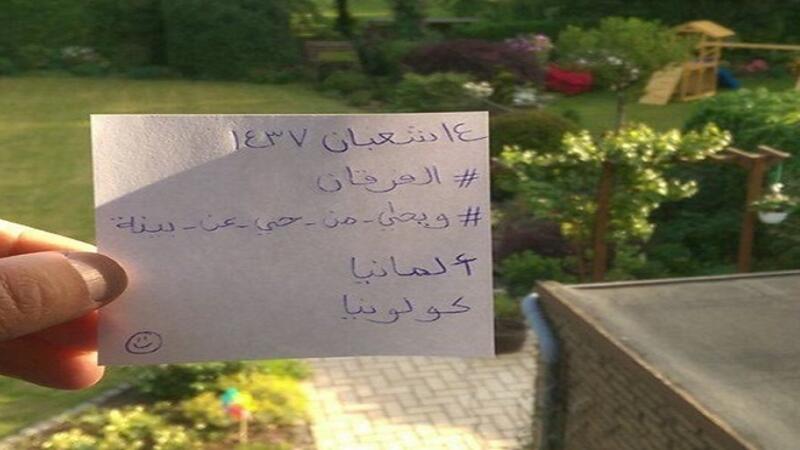 ١٤ شعبان ١٤٣٧
# الفرقان
# ويحيى_من_حي_عن_بينة
ألمانيا
كولونيا